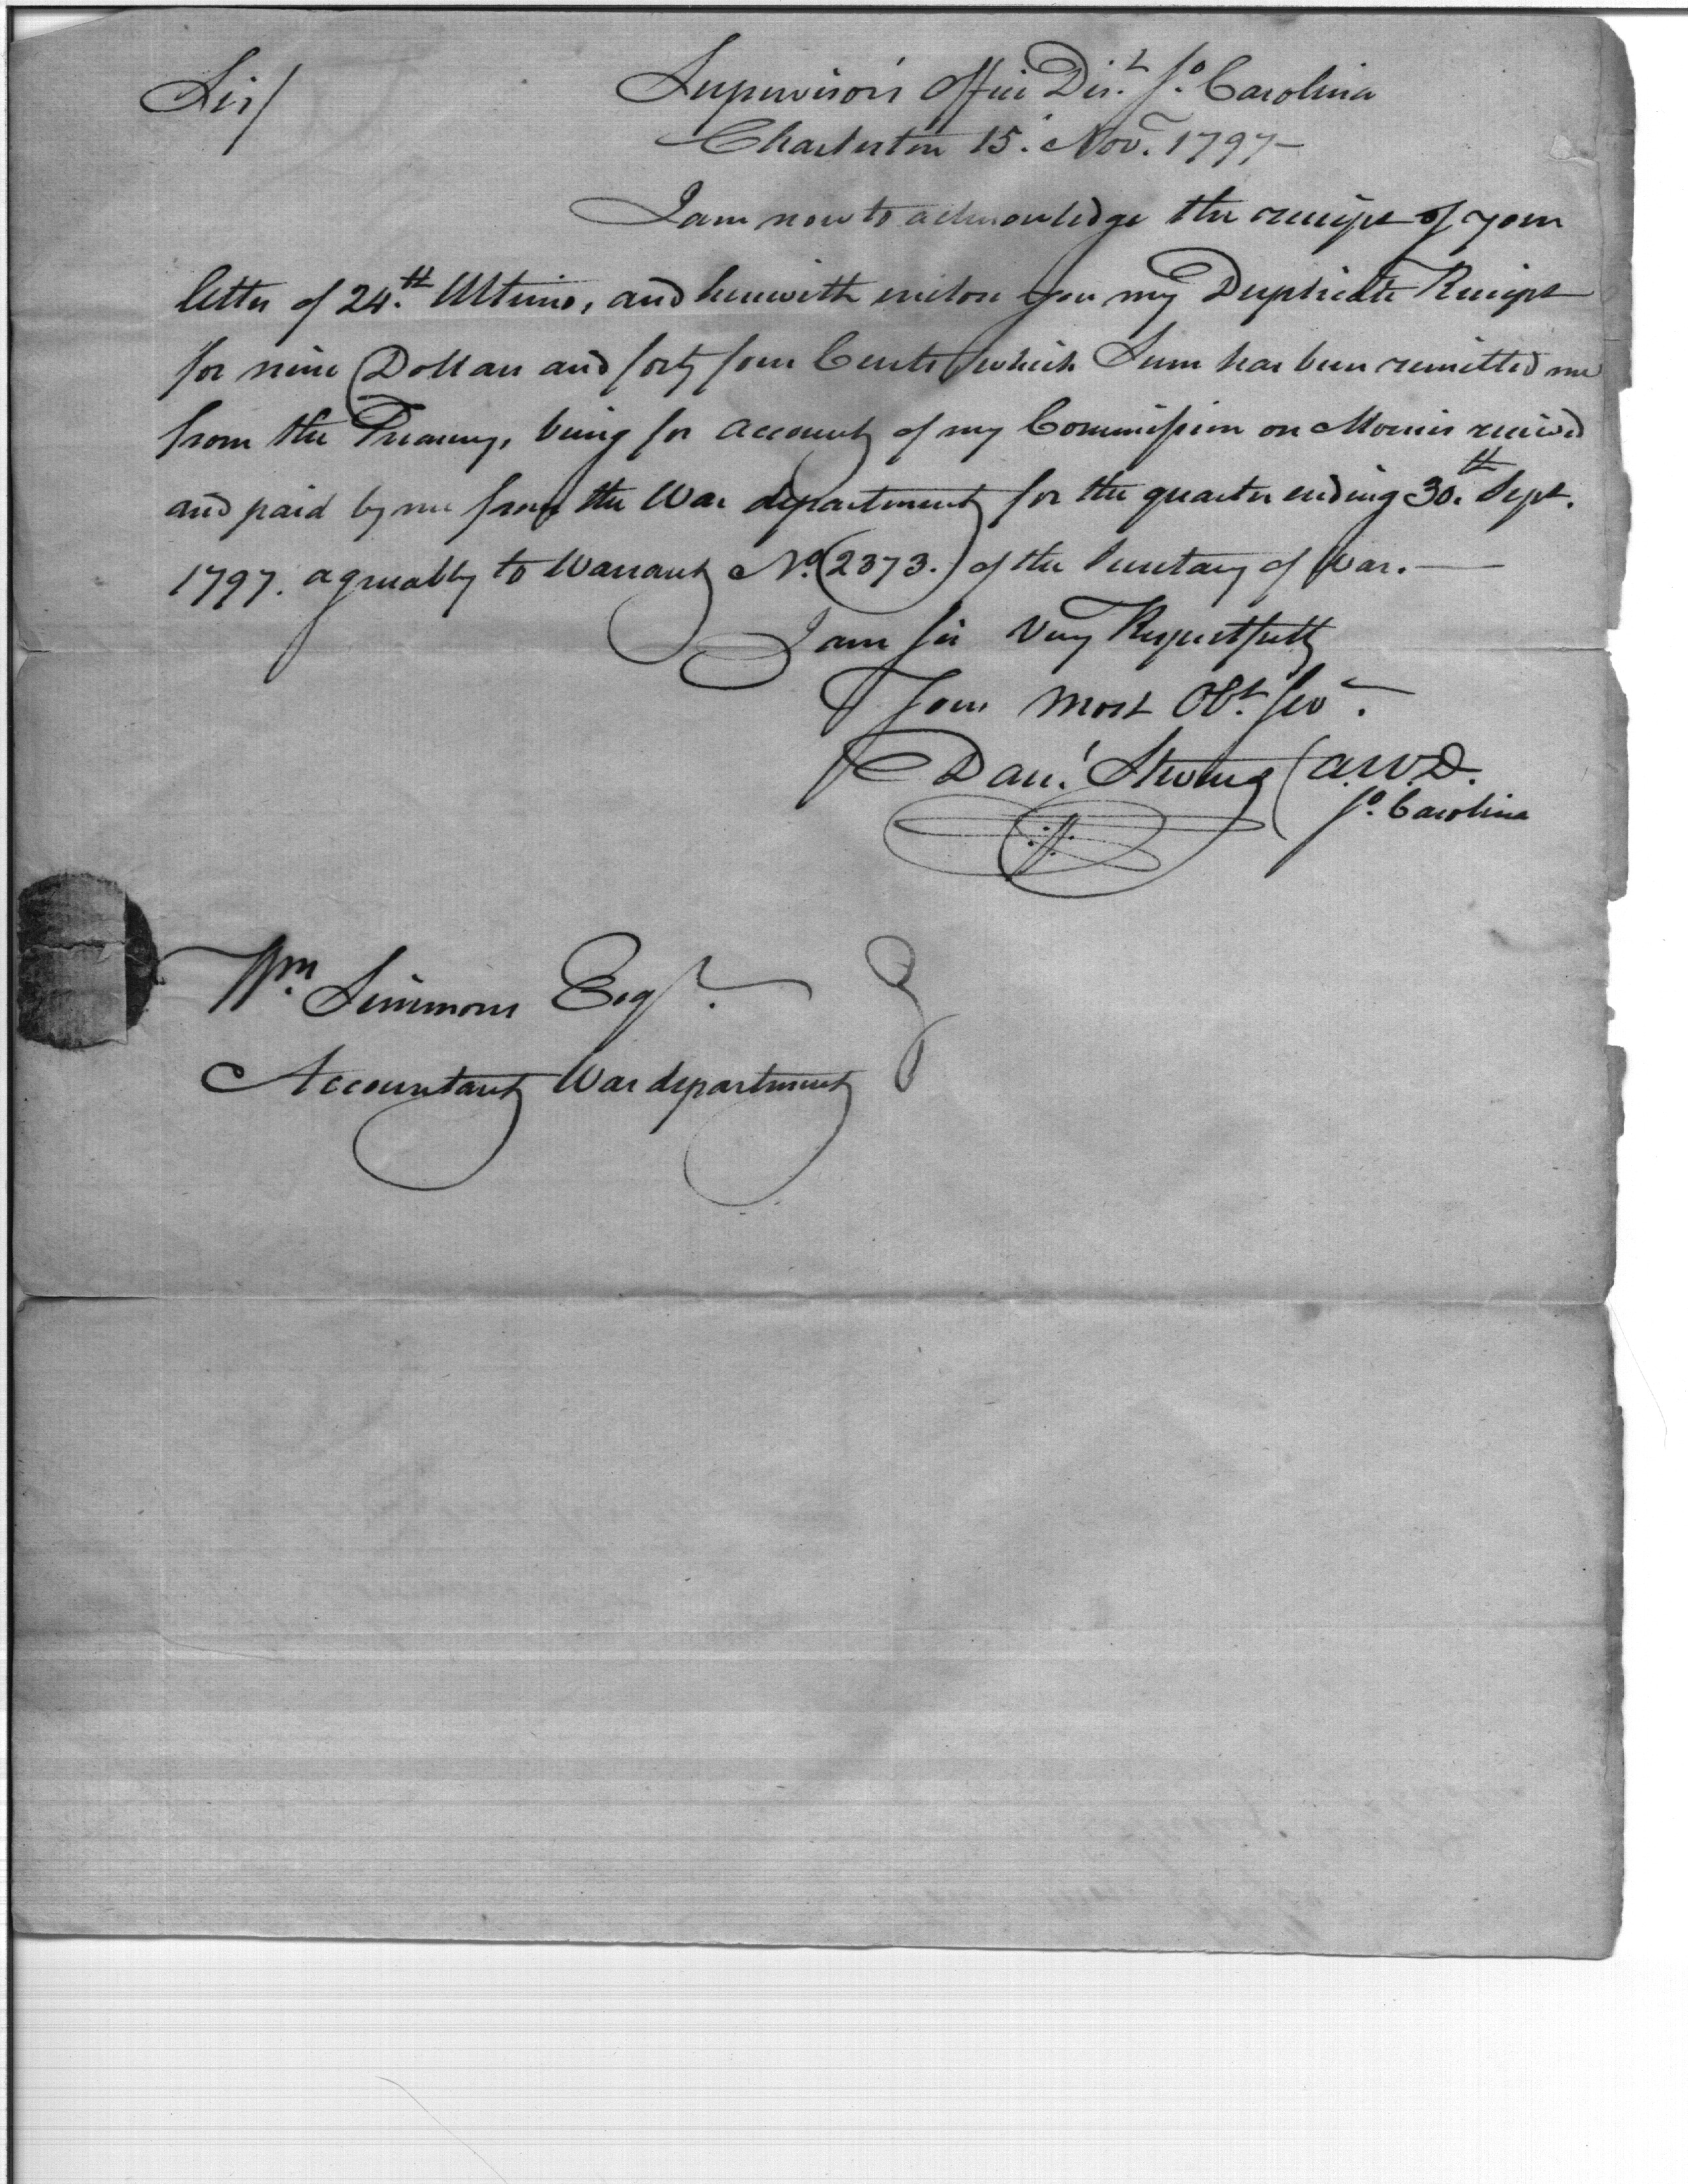 Sir/
Supervisor's Office Dist. So. Carolina
Charleston 15. Nov. 1797—
I am now to acknowledge the receipt of your
letter of 24.th Ultimo, and herewith enclose you my Duplicate Receipt
for nine Dollars and forty four Cents which Sum has been remitted me
from the Treasury, being for account of my Commission on Monies received
and paid by me from the War department for the quarter ending 30.th Sept.
1797. agreeably to Warrant No. (2373.) of the Secretary of War.—
I am Sir Very Respectfully
Your most Obt. Serv.
Danl. Stevens (A.W.D.
So. Carolina
Wm. Simmons Esqr.
Accountant War department